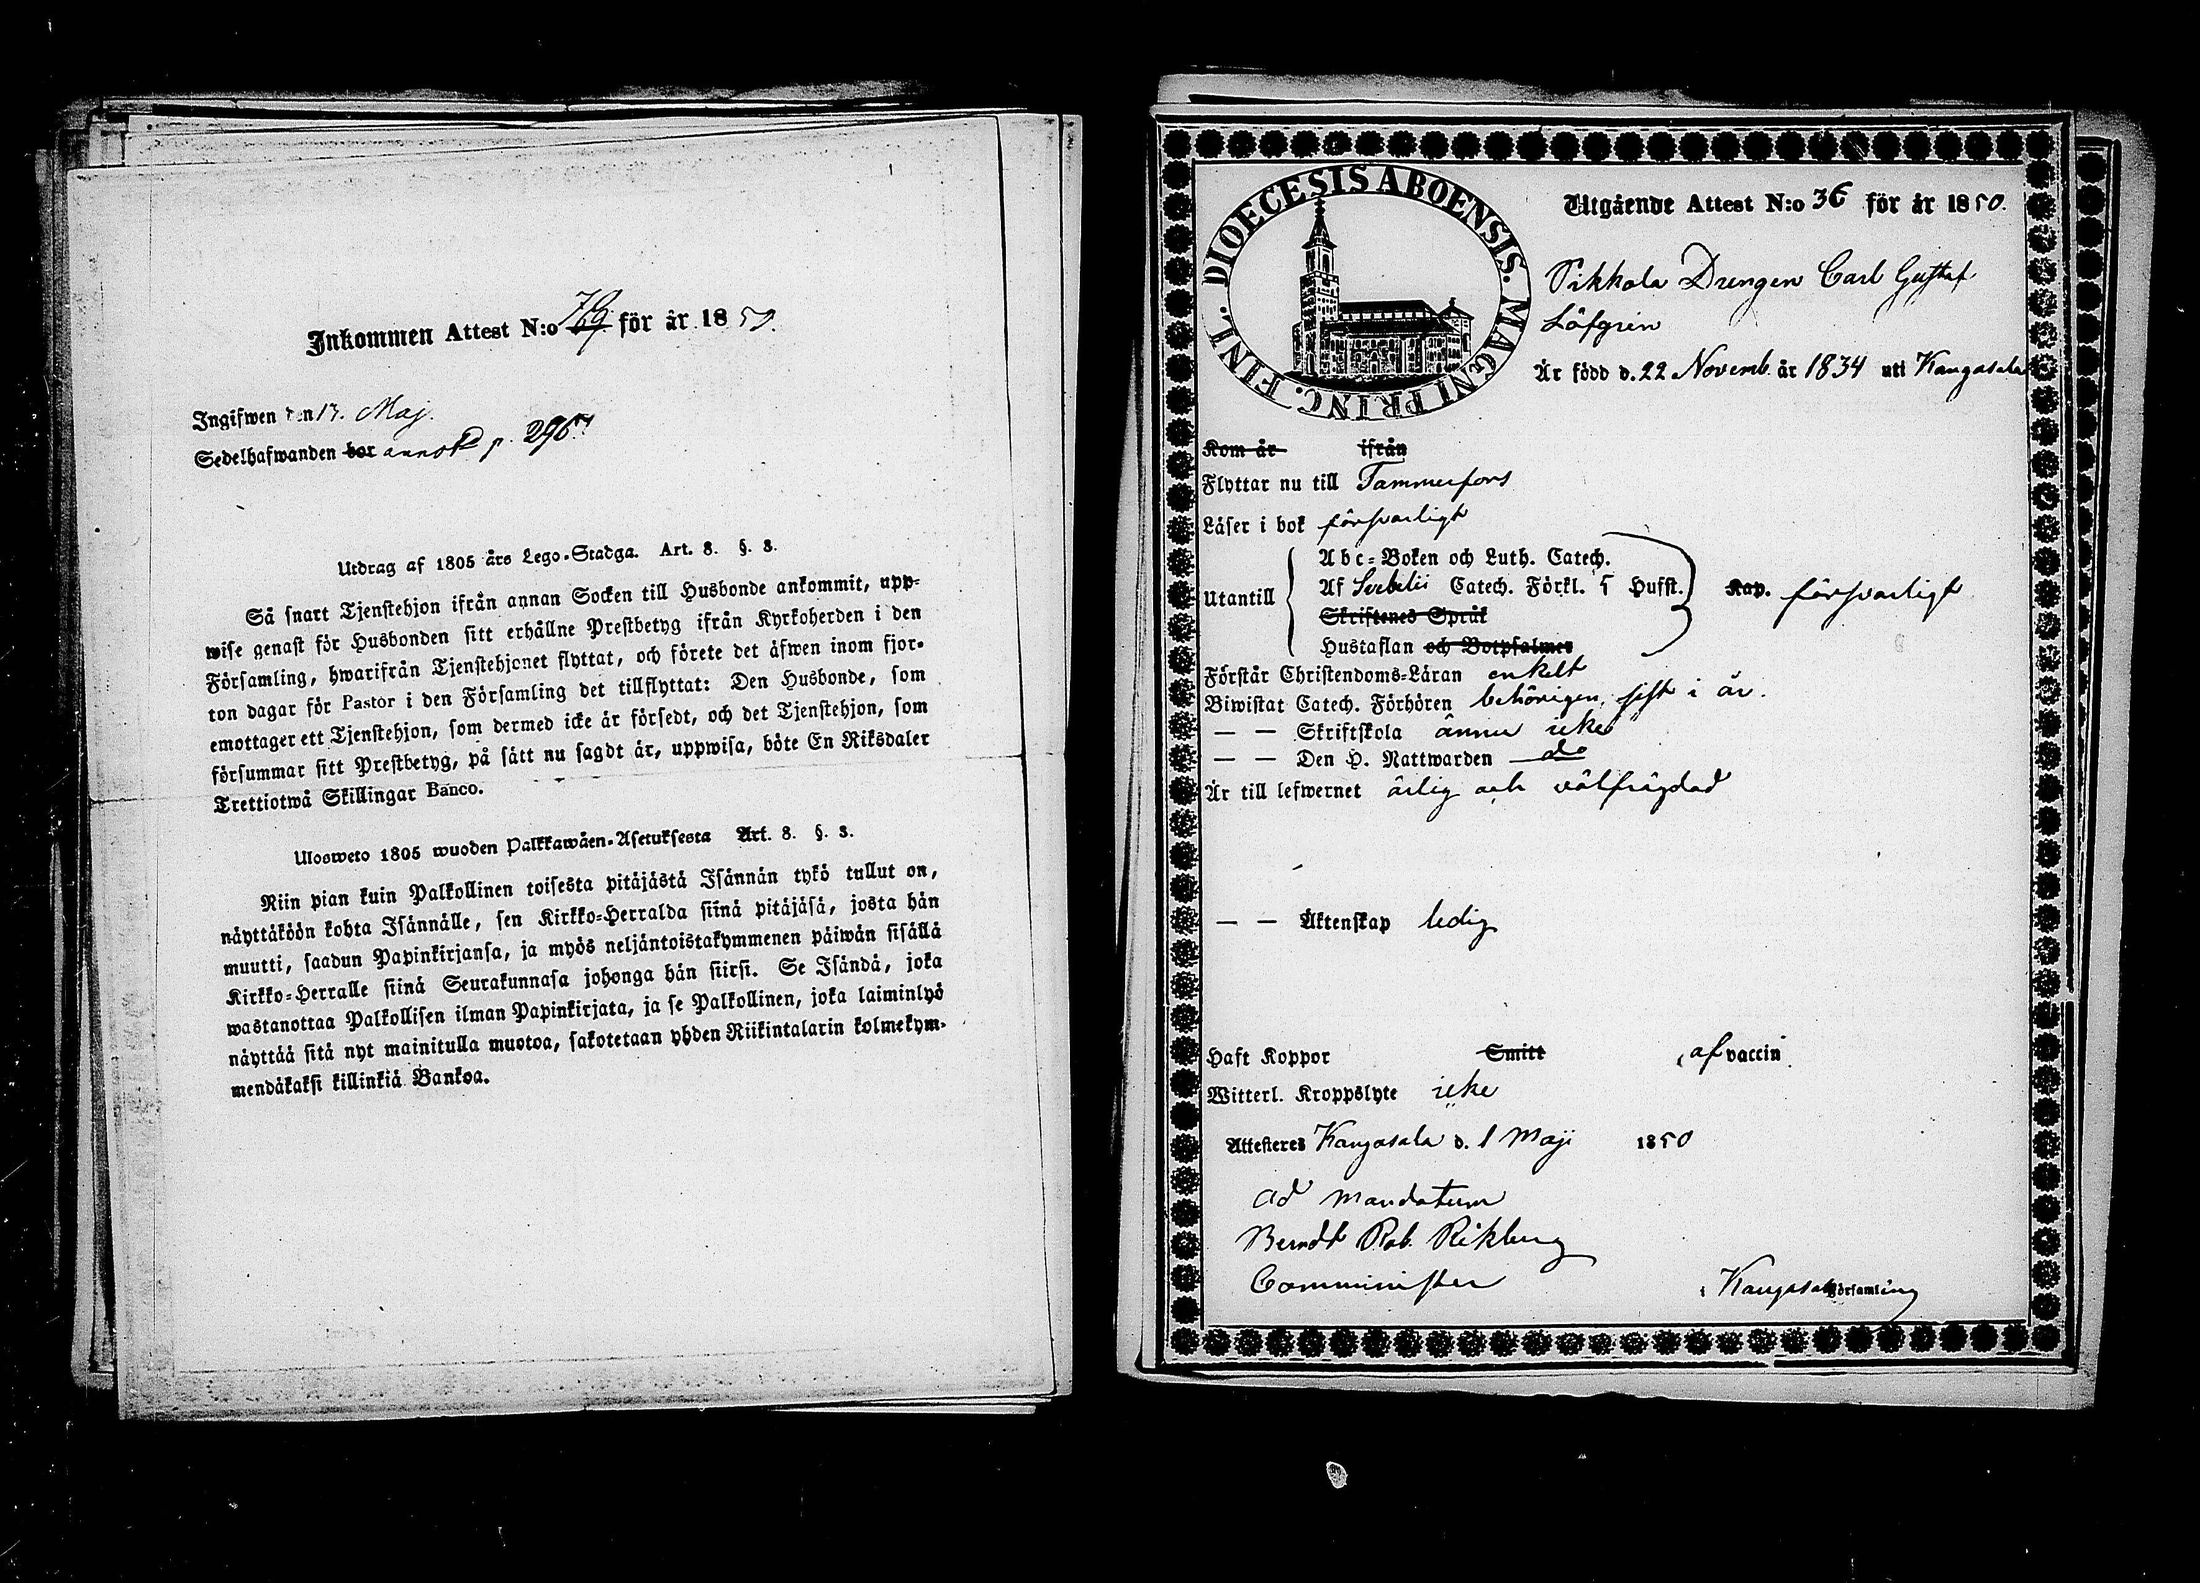 Inkommen Attest N:o 79 för år 1850.
Ingifwen den 13. Maj.
Sedelhafwanden bor annot p. 296
Utdrag af 1805 års Lego-Stadga. Art. 8. §. 3.
Så snart Tjenstehjon ifrån annan Socken till Husbonde ankommit, upp-
wise genast för Husbonden sitt erhållne Prestbetyg ifrån Kyrkoherden i den
Församling, hwarifrån Tjenstehjonet flyttat, och förete det äfwen inom fjor-
ton dagar för Pastor i den Församling det tillflyttat: Den Husbonde, som
emottager ett Tjenstehjon, som dermed icke är försedt, och det Tjenstehjon, som
försummar sitt Prestbetyg, på sätt nu sagdt är, uppwisa, böte En Riksdaler
Trettiotwå Skillingar Banco.
Ulosweto 1805 wuoden Palkkawäen-Asetuksesta Art. 8. §. 3.
Niin pian kuin Palkollinen toisesta pitäjästä Isännän tykö tullut on,
näyttäköön kohta Isännälle, sen Kirkko-Herralda siinä pitäjäsä, josta hän
muutti, saadun Papinkirjansa, ja myös neljäntoistakymmenen päiwän sisällä
Kirkko-Herralle siinä Seurakunnasa johonga hän siirsi. Se Isändä, joka
wastanottaa Palkollisen ilman Papinkirjata, ja se Palkollinen, joka laiminlyö
näyttää sitä nyt mainitulla muotoa, sakotetaan yhden Riikintalarin kolmekym-
mendäkaksi killinkiä Bankoa.
DIOECESIS ABOENSIS. MAGNI PRINC. FINL.
Utgående Attest N:o 36 för år 1850.
Pikkola Drengen Carl Gustaf
Löfgrén
Är född d. 22 Novemb. år 1834 uti Kangasala
Kom år ifrån
Flyttar nu till Tammerfors
Läser i bok försvarligt
Utantill
Abc-Boken och Luth. Catech.
Af Svebelii Catech. Förkl. 5 Hufst.
Skriftenes Språk
Hustaflan och Botpsalmer
Kap. försvarligt
Förstår Christendoms-Läran enkelt
Biwistat Catech. Förhören behörigen, sist i år.
— — Skriftskola ännu icke
— — Den H. Nattwarden do
Är till lefwernet ärlig och välfrägdad
— — Äktenskap ledig
Haft Koppor Smitt af vaccin
Witterl. Kroppslyte icke
Attesteres Kangasala d. 1 Maji 1850
ad mandatum
Berndt Rob. Rikberg
Comminister
i Kangasala Församling